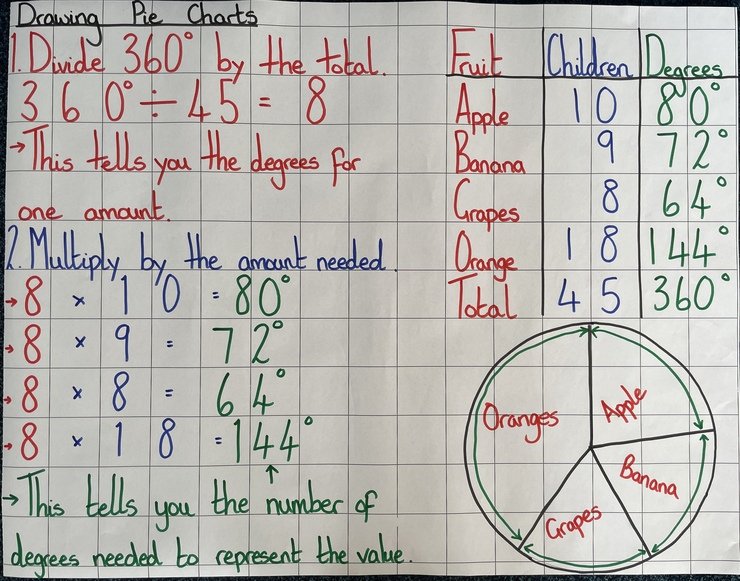 Drawing Pie Charts
1. Divide 360° by the total.
360° ÷ 45 = 8
→ This tells you the degrees for
one amount.
2. Multiply by the amount needed.
→ 8 × 10 = 80°
→ 8 × 9 = 72°
→ 8 × 8 = 64°
→ 8 × 18 = 144°
→ This tells you the number of
degrees needed to represent the value.
Fruit Children Degrees
Apple 10 80°
Banana 9 72°
Grapes 8 64°
Orange 18 144°
Total 45 360°
Oranges
Apple
Banana
Grapes